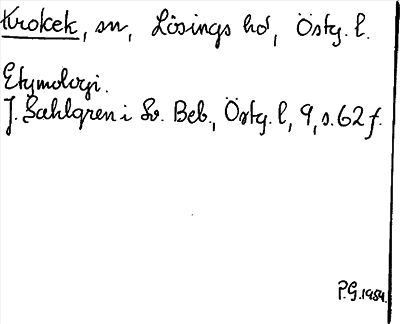 Krokek, sn, Lösings hd, Östg. l.
Etymologi.
J. Sahlgren i Sv. Beb., Östg. l, 9, s. 62 f.
P.G. 1984.